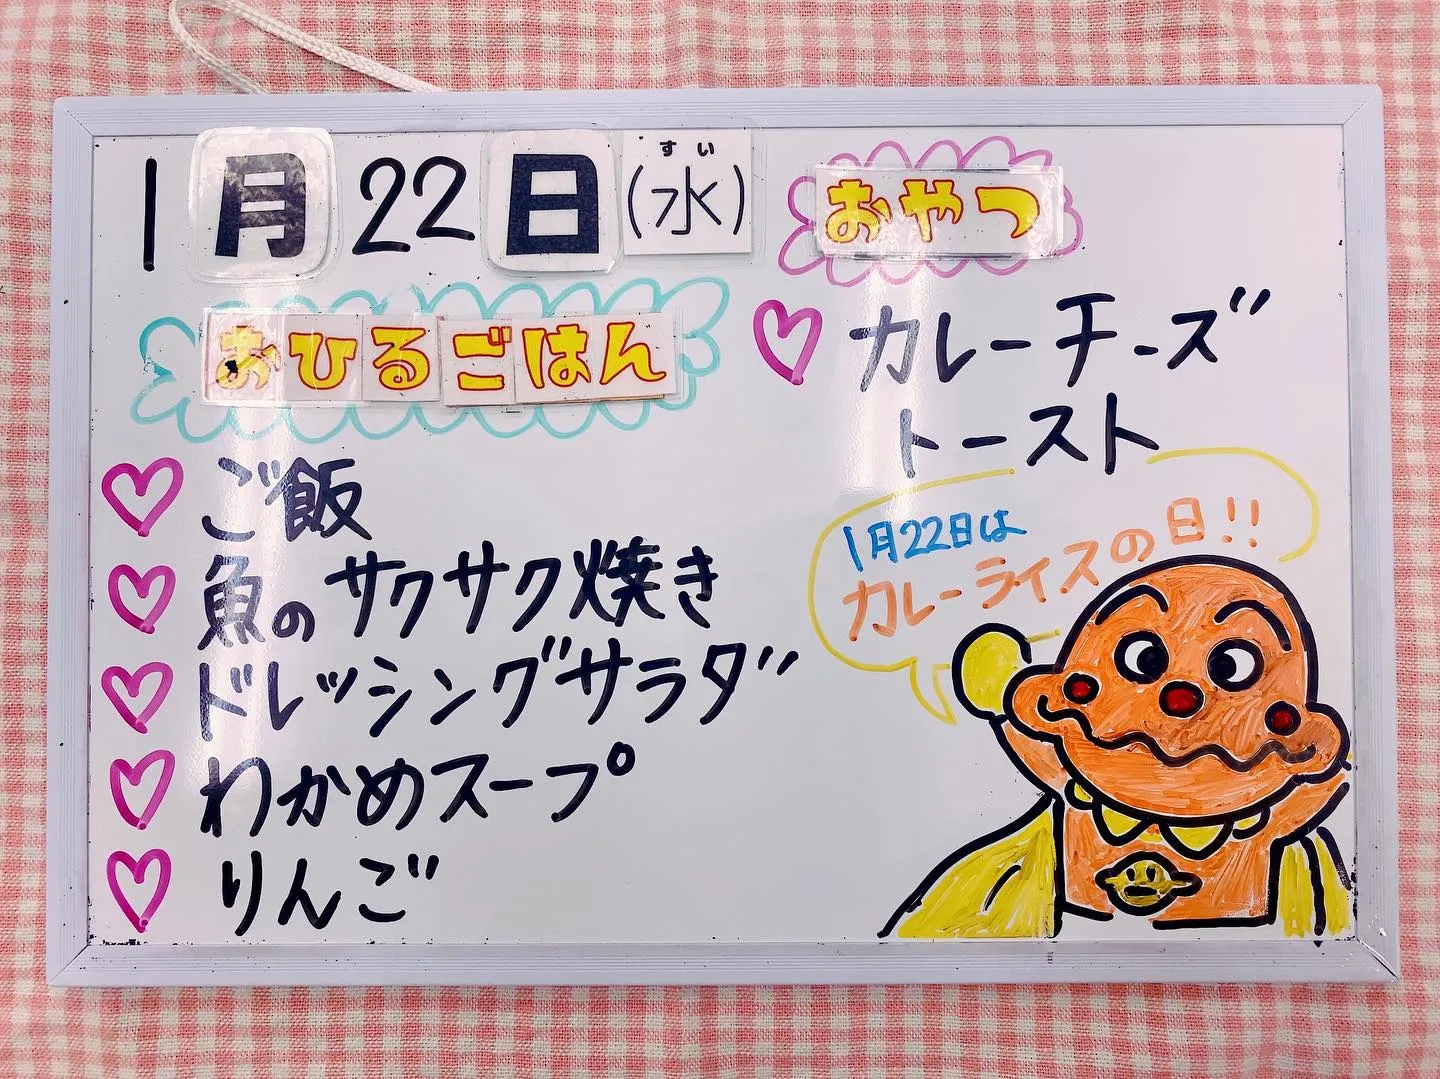 1月22日(水)
すい
おひるごはん
ご飯
魚のサクサク焼き
ドレッシングサラダ
わかめスープ
りんご
おやつ
カレーチーズ
トースト
1月22日は
カレーライスの日!!